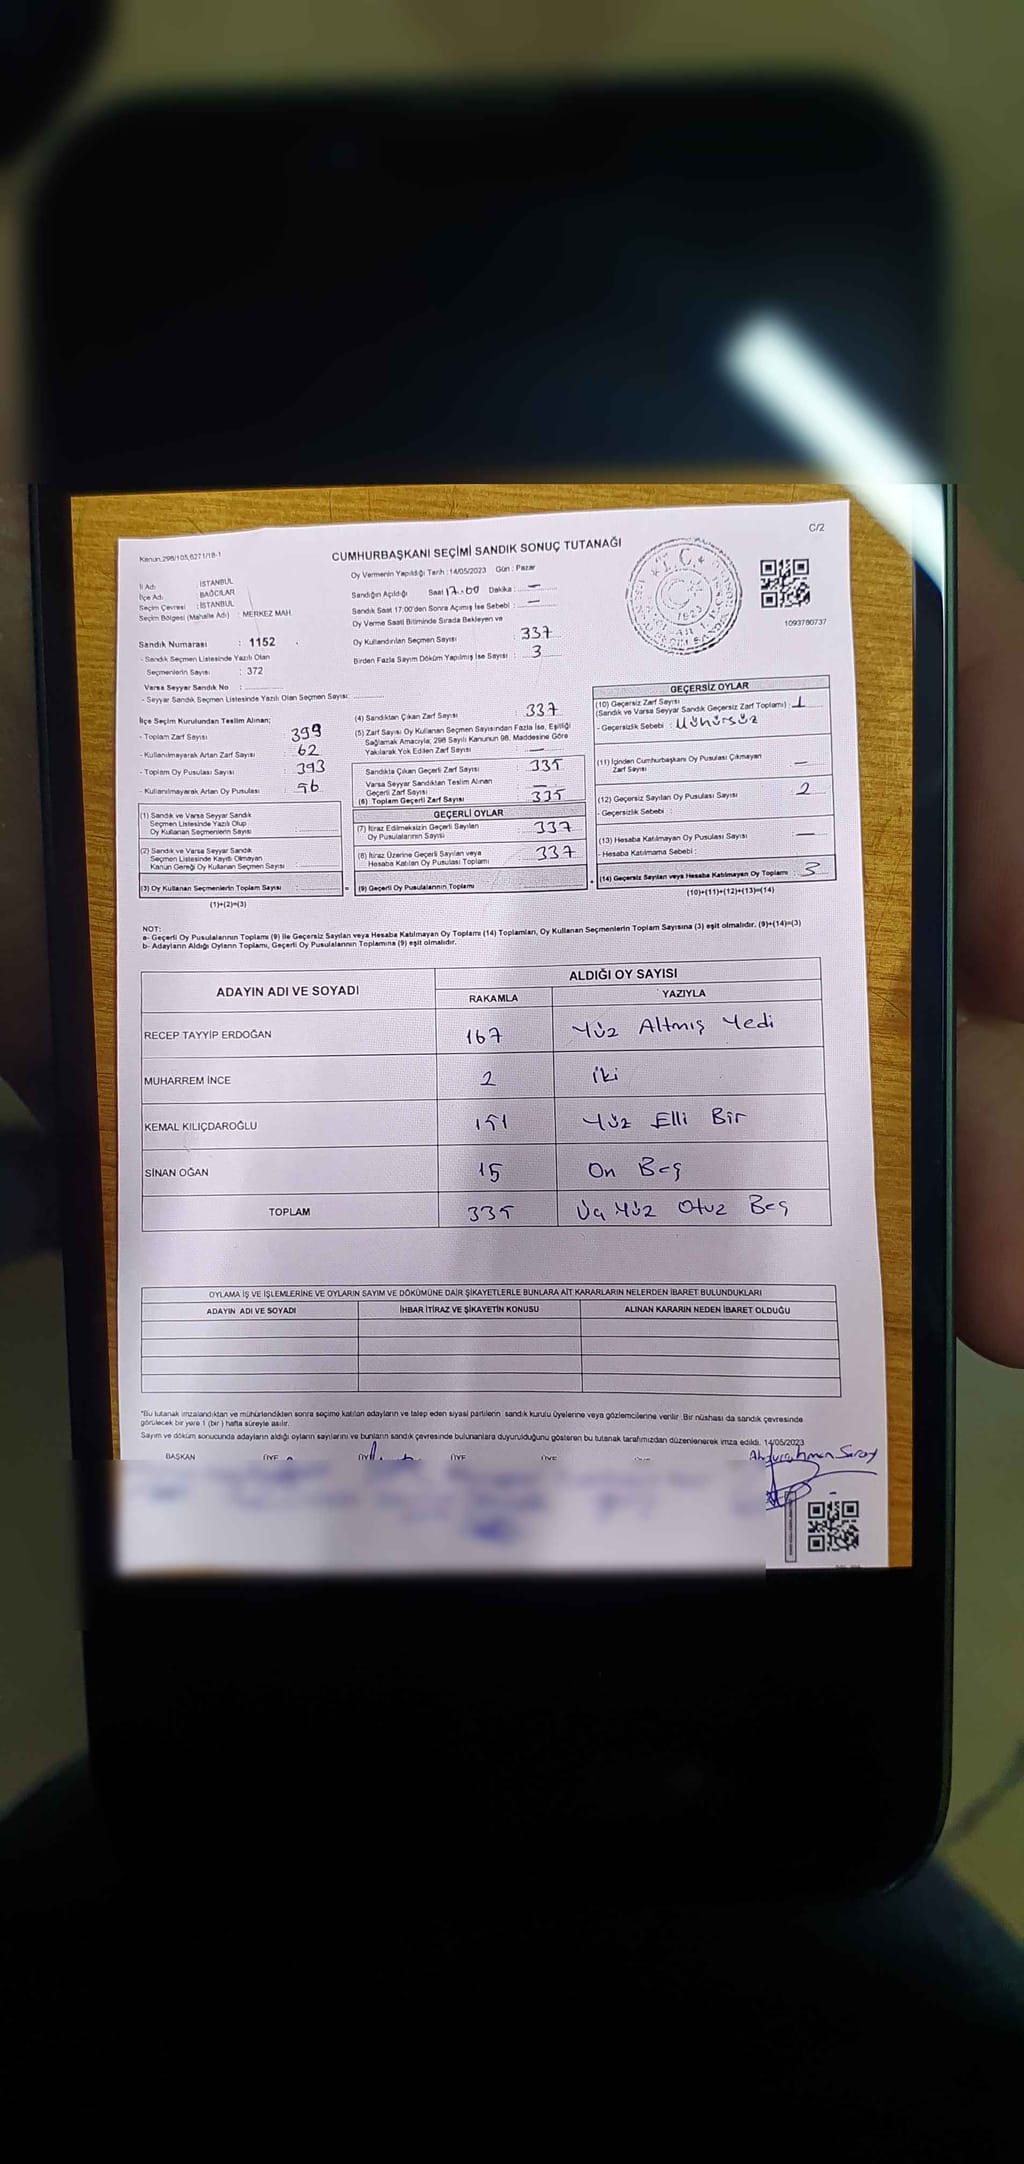 Kanun.298/105,6271/18-1
C/2
CUMHURBAŞKANI SEÇİMİ SANDIK SONUÇ TUTANAĞI
İl Adı : İSTANBUL
İlçe Adı : BAĞCILAR
Seçim Çevresi : İSTANBUL
Seçim Bölgesi (Mahalle Adı) : MERKEZ MAH.
Sandık Numarası : 1152
- Sandık Seçmen Listesinde Yazılı Olan
Seçmenlerin Sayısı : 372
Varsa Seyyar Sandık No :
- Seyyar Sandık Seçmen Listesinde Yazılı Olan Seçmen Sayısı:
Oy Vermenin Yapıldığı Tarih : 14/05/2023 Gün : Pazar
Sandığın Açıldığı Saat 17.00 Dakika : —
Sandık Saat 17:00'den Sonra Açımış İse Sebebi : —
Oy Verme Saati Bitiminde Sırada Bekleyen ve
Oy Kullandırılan Seçmen Sayısı : 337
Birden Fazla Sayım Döküm Yapılmış İse Sayısı : 3
1093780737
İlçe Seçim Kurulundan Teslim Alınan;
- Toplam Zarf Sayısı : 399
- Kullanılmayarak Artan Zarf Sayısı : 62
- Toplam Oy Pusulası Sayısı : 393
- Kullanılmayarak Artan Oy Pusulası : 56
(1) Sandık ve Varsa Seyyar Sandık
Seçmen Listesinde Yazılı Olup
Oy Kullanan Seçmenlerin Sayısı :
(2) Sandık ve Varsa Seyyar Sandık
Seçmen Listesinde Kayıtlı Olmayan
Kanun Gereği Oy Kullanan Seçmen Sayısı :
(3) Oy Kullanan Seçmenlerin Toplam Sayısı :
(1)+(2)=(3)
(4) Sandıktan Çıkan Zarf Sayısı : 337
(5) Zarf Sayısı Oy Kullanan Seçmen Sayısından Fazla İse, Eşitliği
Sağlamak Amacıyla, 298 Sayılı Kanunun 98. Maddesine Göre
Yakılarak Yok Edilen Zarf Sayısı : —
Sandıkta Çıkan Geçerli Zarf Sayısı : 335
Varsa Seyyar Sandıktan Teslim Alınan
Geçerli Zarf Sayısı : —
(6) Toplam Geçerli Zarf Sayısı : 335
GEÇERLİ OYLAR
(7) İtiraz Edilmeksizin Geçerli Sayılan
Oy Pusulalarının Sayısı : 337
(8) İtiraz Üzerine Geçerli Sayılan veya
Hesaba Katılan Oy Pusulası Toplamı : 337
(9) Geçerli Oy Pusulalarının Toplamı :
GEÇERSİZ OYLAR
(10) Geçersiz Zarf Sayısı
(Sandık ve Varsa Seyyar Sandık Geçersiz Zarf Toplamı) : 1
- Geçersizlik Sebebi : Mühürsüz
(11) İçinden Cumhurbaşkanı Oy Pusulası Çıkmayan
Zarf Sayısı : —
(12) Geçersiz Sayılan Oy Pusulası Sayısı : 2
- Geçersizlik Sebebi :
(13) Hesaba Katılmayan Oy Pusulası Sayısı : —
- Hesaba Katılmama Sebebi :
(14) Geçersiz Sayılan veya Hesaba Katılmayan Oy Toplamı : 3
(10)+(11)+(12)+(13)=(14)
NOT:
a- Geçerli Oy Pusulalarının Toplamı (9) ile Geçersiz Sayılan veya Hesaba Katılmayan Oy Toplamı (14) Toplamları, Oy Kullanan Seçmenlerin Toplam Sayısına (3) eşit olmalıdır. (9)+(14)=(3)
b- Adayların Aldığı Oyların Toplamı, Geçerli Oy Pusulalarının Toplamına (9) eşit olmalıdır.
ADAYIN ADI VE SOYADI
ALDIĞI OY SAYISI
RAKAMLA YAZIYLA
RECEP TAYYİP ERDOĞAN 167 Yüz Altmış Yedi
MUHARREM İNCE 2 İki
KEMAL KILIÇDAROĞLU 151 Yüz Elli Bir
SİNAN OĞAN 15 On Beş
TOPLAM 335 Üç Yüz Otuz Beş
OYLAMA İŞ VE İŞLEMLERİNE VE OYLARIN SAYIM VE DÖKÜMÜNE DAİR ŞİKAYETLERLE BUNLARA AİT KARARLARIN NELERDEN İBARET BULUNDUKLARI
ADAYIN ADI VE SOYADI İHBAR İTİRAZ VE ŞİKAYETİN KONUSU ALINAN KARARIN NEDEN İBARET OLDUĞU
*Bu tutanak imzalandıktan ve mühürlendikten sonra seçime katılan adayların ve talep eden siyasi partilerin sandık kurulu üyelerine veya gözlemcilerine verilir. Bir nüshası da sandık çevresinde
görülecek bir yere 1 (bir) hafta süreyle asılır.
Sayım ve döküm sonucunda adayların aldığı oyların sayılarını ve bunların sandık çevresinde bulunanlara duyurulduğunu gösteren bu tutanak tarafımızdan düzenlenerek imza edildi. 14/05/2023
BAŞKAN ÜYE ÜYE ÜYE ÜYE
Abdurrahman Saray